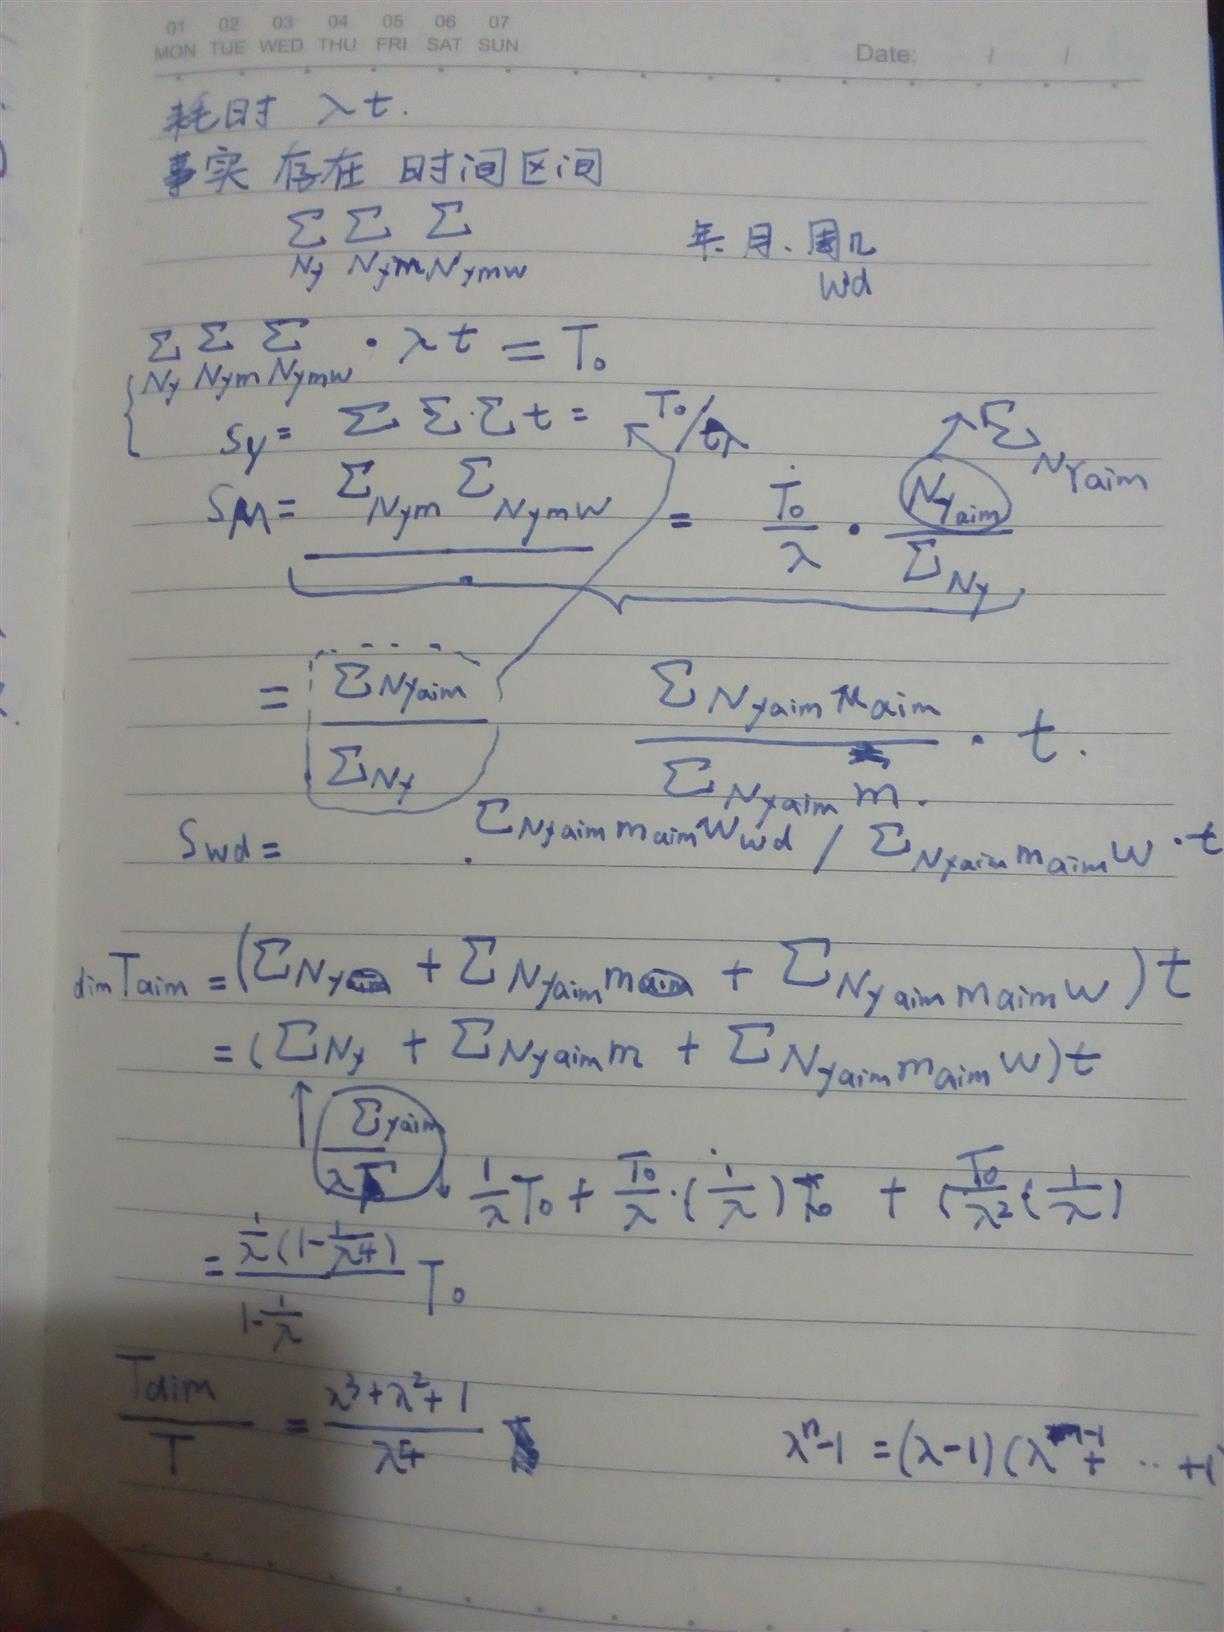 01 02 03 04 05 06 07
MON TUE WED THU FRI SAT SUN
Date: / /
耗时 λt.
事实 存在 时间区间
Σ_Ny Σ_Nym Σ_Nymw 年、月、周几
wd
Σ_Ny Σ_Nym Σ_Nymw · λt = T₀
Sy = Σ Σ Σ t = T₀/λ
Sm = Σ_Nym Σ_Nymw = T₀/λ · N_yaim/Σ_Ny Σ_NYaim
= Σ_Nyaim/Σ_Ny Σ_Nyaim maim/Σ_Nyaim m. · t.
Swd = · Σ_Nyaim maim Wwd / Σ_Nyaim maim W · t
dim Taim = (Σ_Ny + Σ_Nyaim m + Σ_Nyaim maim W)t
= (Σ_Ny + Σ_Nyaim m + Σ_Nyaim maim W)t
↑ Σ_yaim/λ 1/λ T₀ + T₀/λ · (1/λ) T₀ + (T₀/λ² (1/λ)
= 1/λ(1-1/λ⁴)/1-1/λ T₀
Tdim/T = λ³+λ²+1/λ⁴ λⁿ-1 = (λ-1)(λⁿ⁻¹+ ··· +1